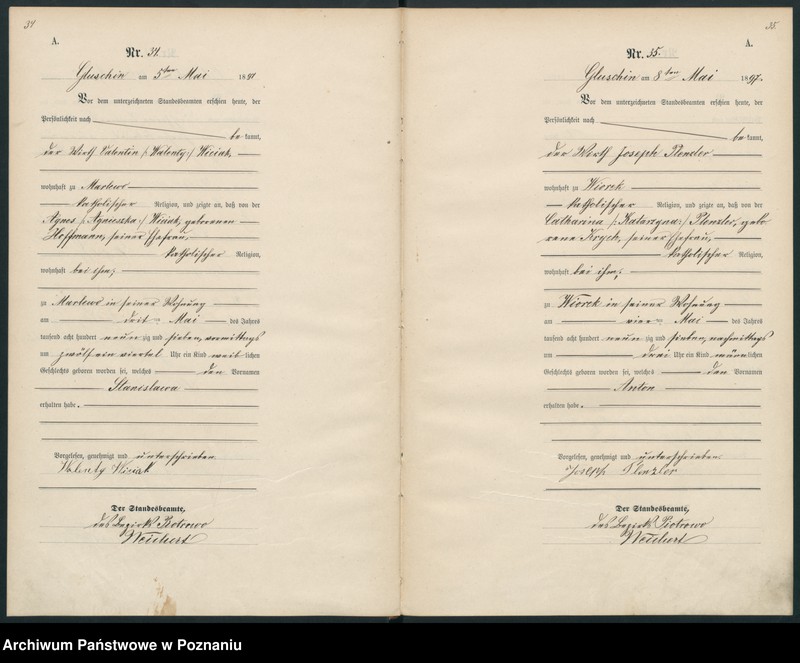 34
A.
Nr. 34.
Gluschin am 5ten Mai 1891
Vor dem unterzeichneten Standesbeamten erschien heute, der
Persönlichkeit nach
be kannt,
der Wirth Valentin /: Walenty :/ Wiciak,
wohnhaft zu Marlewo
katholischer Religion, und zeigte an, daß von der
Agnes /: Agnieszka :/ Wiciak, geborenen
Hoffmann, seiner Ehefrau,
katholischer Religion,
wohnhaft bei ihm;
zu Marlewo in seiner Wohnung
am drit Mai des Jahres
tausend acht hundert neun zig und sieben, vormittags
um zwölf ein viertel Uhr ein Kind weib lichen
Geschlechts geboren worden sei, welches den Vornamen
Stanislawa
erhalten habe.
Vorgelesen, genehmigt und unterschrieben
Walenty Wiciak
Der Standesbeamte,
des Bezirk Piotrowo
Weichert
35.
A.
Nr. 35.
Gluschin am 8ten Mai 1897.
Vor dem unterzeichneten Standesbeamten erschien heute, der
Persönlichkeit nach
be kannt,
der Wirth Joseph Plenzler
wohnhaft zu Wiorek
katholischer Religion, und zeigte an, daß von der
Catharina /: Katarzyna :/ Plenzler, gebo
rene Kryck, seiner Ehefrau,
katholischer Religion,
wohnhaft bei ihm;
zu Wiorek in seiner Wohnung
am vier Mai des Jahres
tausend acht hundert neun zig und sieben, nachmittags
um drei Uhr ein Kind männ lichen
Geschlechts geboren worden sei, welches den Vornamen
Anton
erhalten habe.
Vorgelesen, genehmigt und unterschrieben.
Joseph Plenzler
Der Standesbeamte,
des Bezirk Piotrowo
Weichert
Archiwum Państwowe w Poznaniu